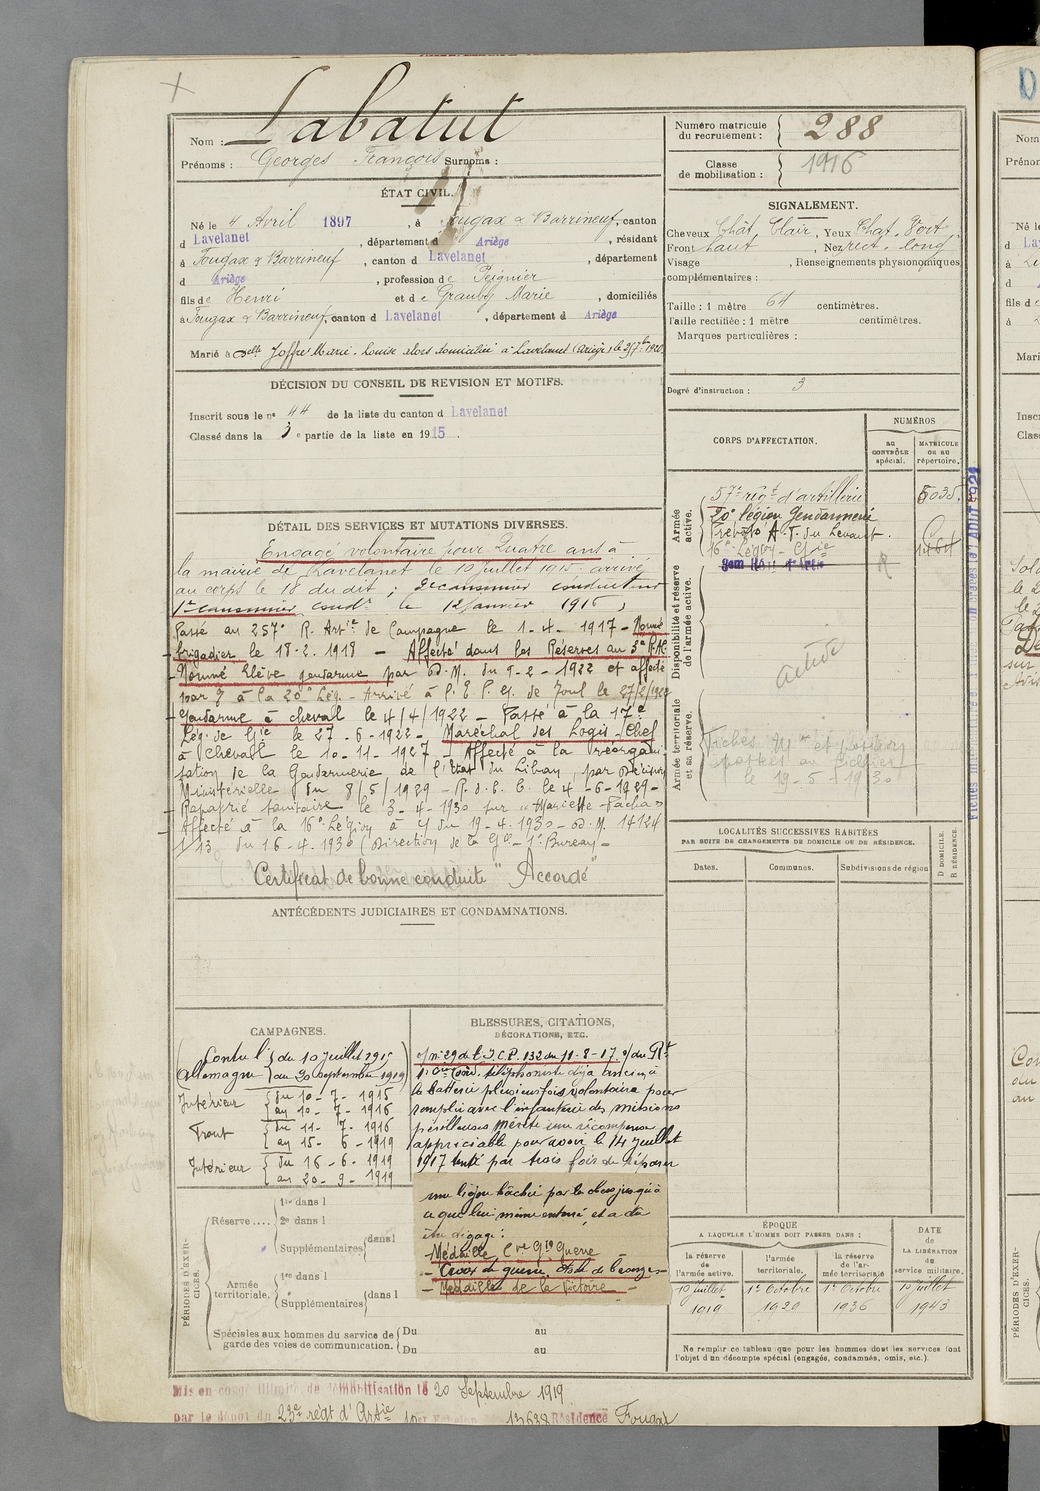 Nom : Labatut
Prénoms : Georges François Surnoms :
ÉTAT CIVIL.
Né le 4 Avril 1897, à Fougax & Barrineuf, canton
d Lavelanet, département d Ariège, résidant
à Fougax & Barrineuf, canton d Lavelanet, département
d Ariège, profession de Peignier
fils de Henri et de Grauby Marie, domiciliés
à Fougax & Barrineuf, canton d Lavelanet, département d Ariège
Marié à Delle Joffre Marie-Louise alors domiciliée à Lavelanet (Ariège) le
DÉCISION DU CONSEIL DE REVISION ET MOTIFS.
Inscrit sous le n° 44 de la liste du canton d Lavelanet
Classé dans la 3e partie de la liste en 1915.
DÉTAIL DES SERVICES ET MUTATIONS DIVERSES.
Engagé volontaire pour Quatre ans à
la mairie de Lavelanet le 10 juillet 1915. arrivé
au corps le 18 du dit ; 2e canonnier conducteur
1er canonnier condr le 12 janvier 1916 ;
Passé au 257° R. Artie de Campagne le 1-4-1917 - Nommé
brigadier le 18-2-1918 - Affecté dans les Réserves au 3e R.A.C.
Nommé Elève gendarme par D.M. du 9-2-1922 et affecté
par à la 20e Lég. - Arrivé à l'E.P.G. de Toul le 27/2/1922
Gendarme à cheval le 4/4/1922 - Passé à la 17e
Lég. de Gie le 27-6-1922 - Maréchal des Logis-Chef
à cheval le 10-11-1927 - Affecté à la réorgani-
sation de la Gendarmerie de l'Etat du Liban, par décision
Ministérielle du 8/5/1929 - R.d.C. C. le 4-6-1929 -
Rapatrié sanitaire le 3-4-1930 sur "Mariette-Pacha"
Affecté à la 16e Légion à du 19-4-1930 - D.M. 14124
1/13 du 16-4-1930 (Direction de la Gie - 1e Bureau) -
Certificat de bonne conduite "Accordé"
ANTÉCÉDENTS JUDICIAIRES ET CONDAMNATIONS.
CAMPAGNES.
Contre l' du 10 juillet 1915
Allemagne au 20 septembre 1919
Intérieur du 10-7-1915
au 10-7-1916
Front du 11-7-1916
au 15-6-1919
Intérieur du 16-6-1919
au 20-9-1919
BLESSURES, CITATIONS,
DÉCORATIONS, ETC.
o/ n° 29 de l'I.C.P. 132 du 11-8-17. o/ du Rt
téléphoniste déjà ancien à
la batterie plusieurs fois volontaire pour
remplir avec l'infanterie des missions
périlleuses mérite une récompense
appréciable pour avoir le 14 juillet
1917 tenté par trois fois de réparer
une ligne hâchée par les obus jusqu'à
ce que lui même enterré, et a du
être dégagé.
Médaille Cve Gde Guerre
- Croix de guerre étoile de bronze -
- Médaille de la Victoire -
PÉRIODES D'EXERCICES.
Réserve.... 1re dans l
2e dans l
Supplémentaires dans l
Armée territoriale. 1re dans l
Supplémentaires dans l
Spéciales aux hommes du service de garde des voies de communication. Du au
Du au
Mis en congé illimité de démobilisation le 20 Septembre 1919
par le dépôt du 23e régt d'Artie 13638 Résidence Fougax
Numéro matricule du recrutement : 288
Classe de mobilisation : 1916
SIGNALEMENT.
Cheveux Chât. Clair, Yeux Chat. Vert
Front haut, Nez rect. long
Visage , Renseignements physionomiques
complémentaires :
Taille : 1 mètre 64 centimètres.
Taille rectifiée : 1 mètre centimètres.
Marques particulières :
Degré d'instruction : 3
CORPS D'AFFECTATION.
NUMÉROS
au contrôle spécial.
MATRICULE ou au répertoire.
Armée active.
57e régt d'artillerie 5035
20e légion Gendarmerie
Prévôté A.F. du Levant.
16e Légion Gie 1464
Disponibilité et réserve de l'armée active.
R
active
Armée territoriale et sa réserve.
Fiches Mle et position
au fichier
le 19-5-1930
LOCALITÉS SUCCESSIVES HABITÉES
PAR SUITE DE CHANGEMENTS DE DOMICILE OU DE RÉSIDENCE.
Dates. Communes. Subdivisions de région
D DOMICILE.
R RÉSIDENCE.
ÉPOQUE
A LAQUELLE L'HOMME DOIT PASSER DANS :
la réserve de l'armée active.
l'armée territoriale.
la réserve de l'armée territoriale
DATE de LA LIBÉRATION du service militaire.
10 juillet 1919
1er Octobre 1929
1er Octobre 1936
10 juillet 1943
Ne remplir ce tableau que pour les hommes dont les services font
l'objet d'un décompte spécial (engagés, condamnés, omis, etc.).